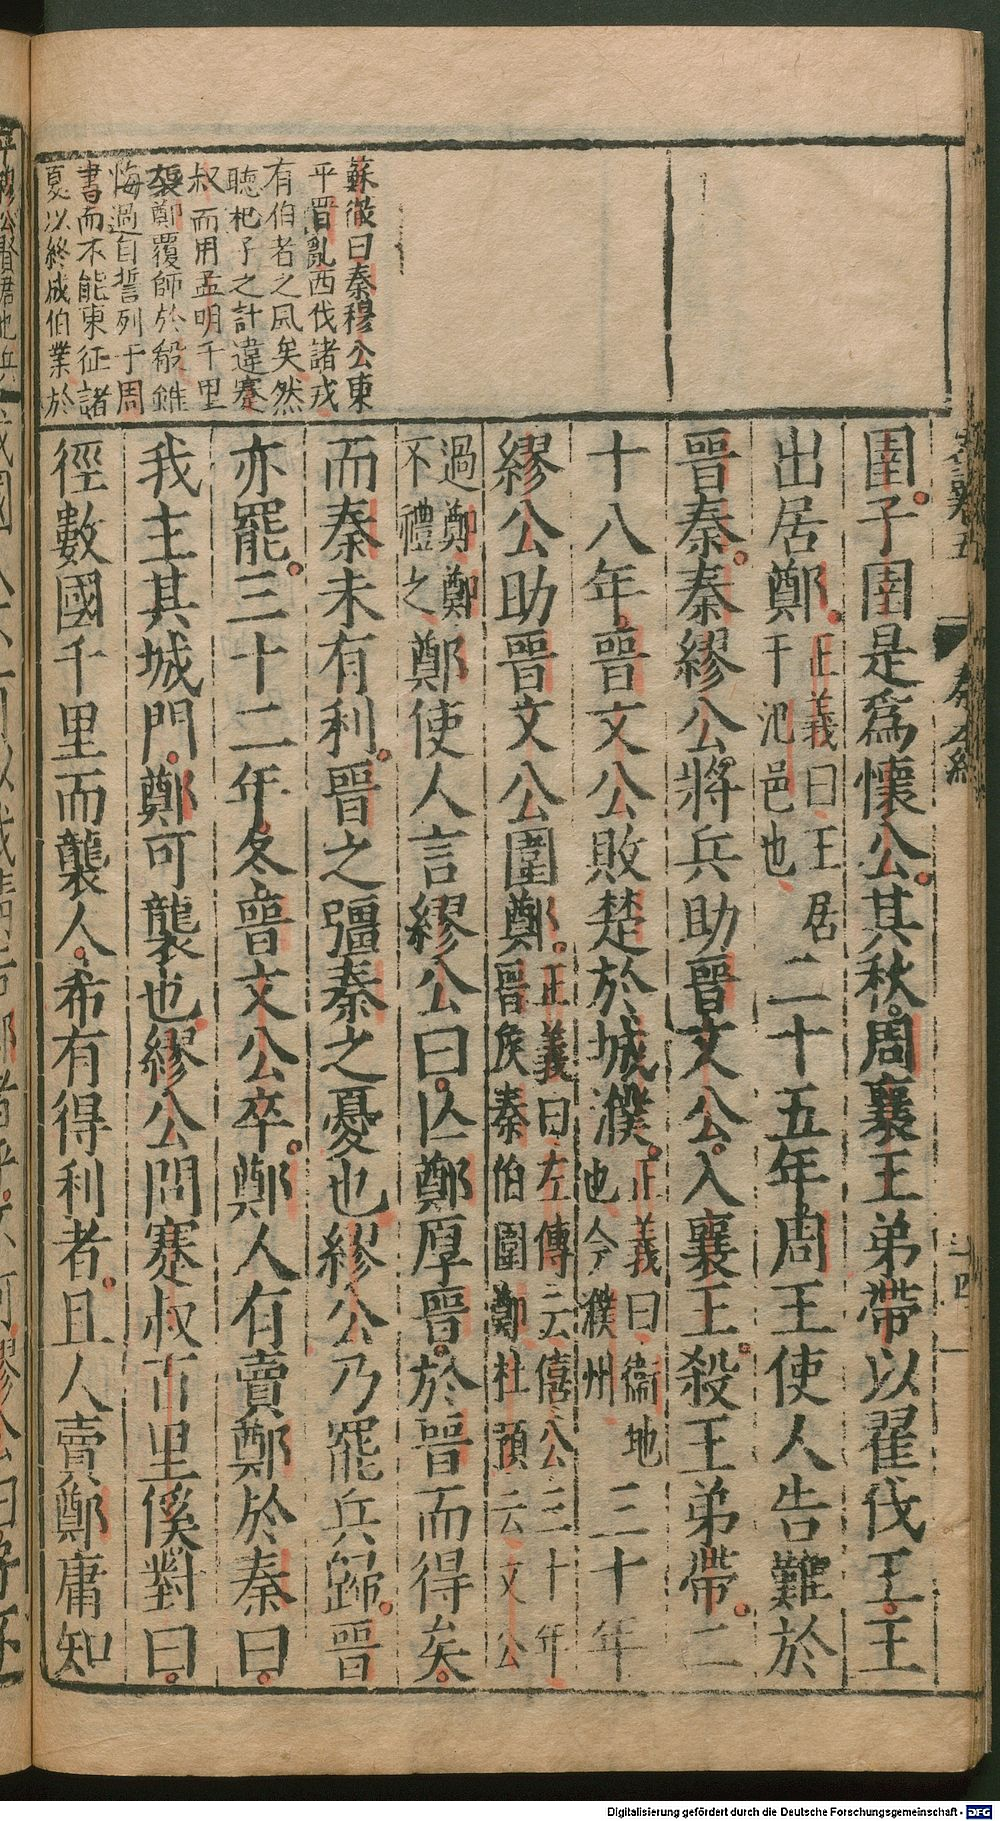 蘇徹曰秦穆公東
平晋亂西伐諸戎
有伯者之風矣然
聽杞子之計違蹇
叔而用孟明千里
襲鄭覆師於殽雖
悔過自誓列于周
書而不能東征諸
夏以終成伯業於
圉子圉是爲懷公其秋周襄王弟帶以翟伐王王
出居鄭
正義曰王居
于氾邑也
二十五年周王使人告難於
晉秦秦繆公將兵助晉文公入襄王殺王弟帶二
十八年晉文公敗楚於城濮
正義曰衞地
也今濮州
三十年
繆公助晉文公圍鄭
正義曰左傳云僖公三十年
晉矦秦伯圍鄭杜預云文公
過鄭鄭
不禮之
鄭使人言繆公曰亾鄭厚晉於晉而得矣
而秦未有利晉之彊秦之憂也繆公乃罷兵歸晉
亦罷三十二年冬晉文公卒鄭人有賣鄭於秦曰
我主其城門鄭可襲也繆公問蹇叔百里傒對曰
徑數國千里而襲人希有得利者且人賣鄭庸知
Digitalisierung gefördert durch die Deutsche Forschungsgemeinschaft - DFG